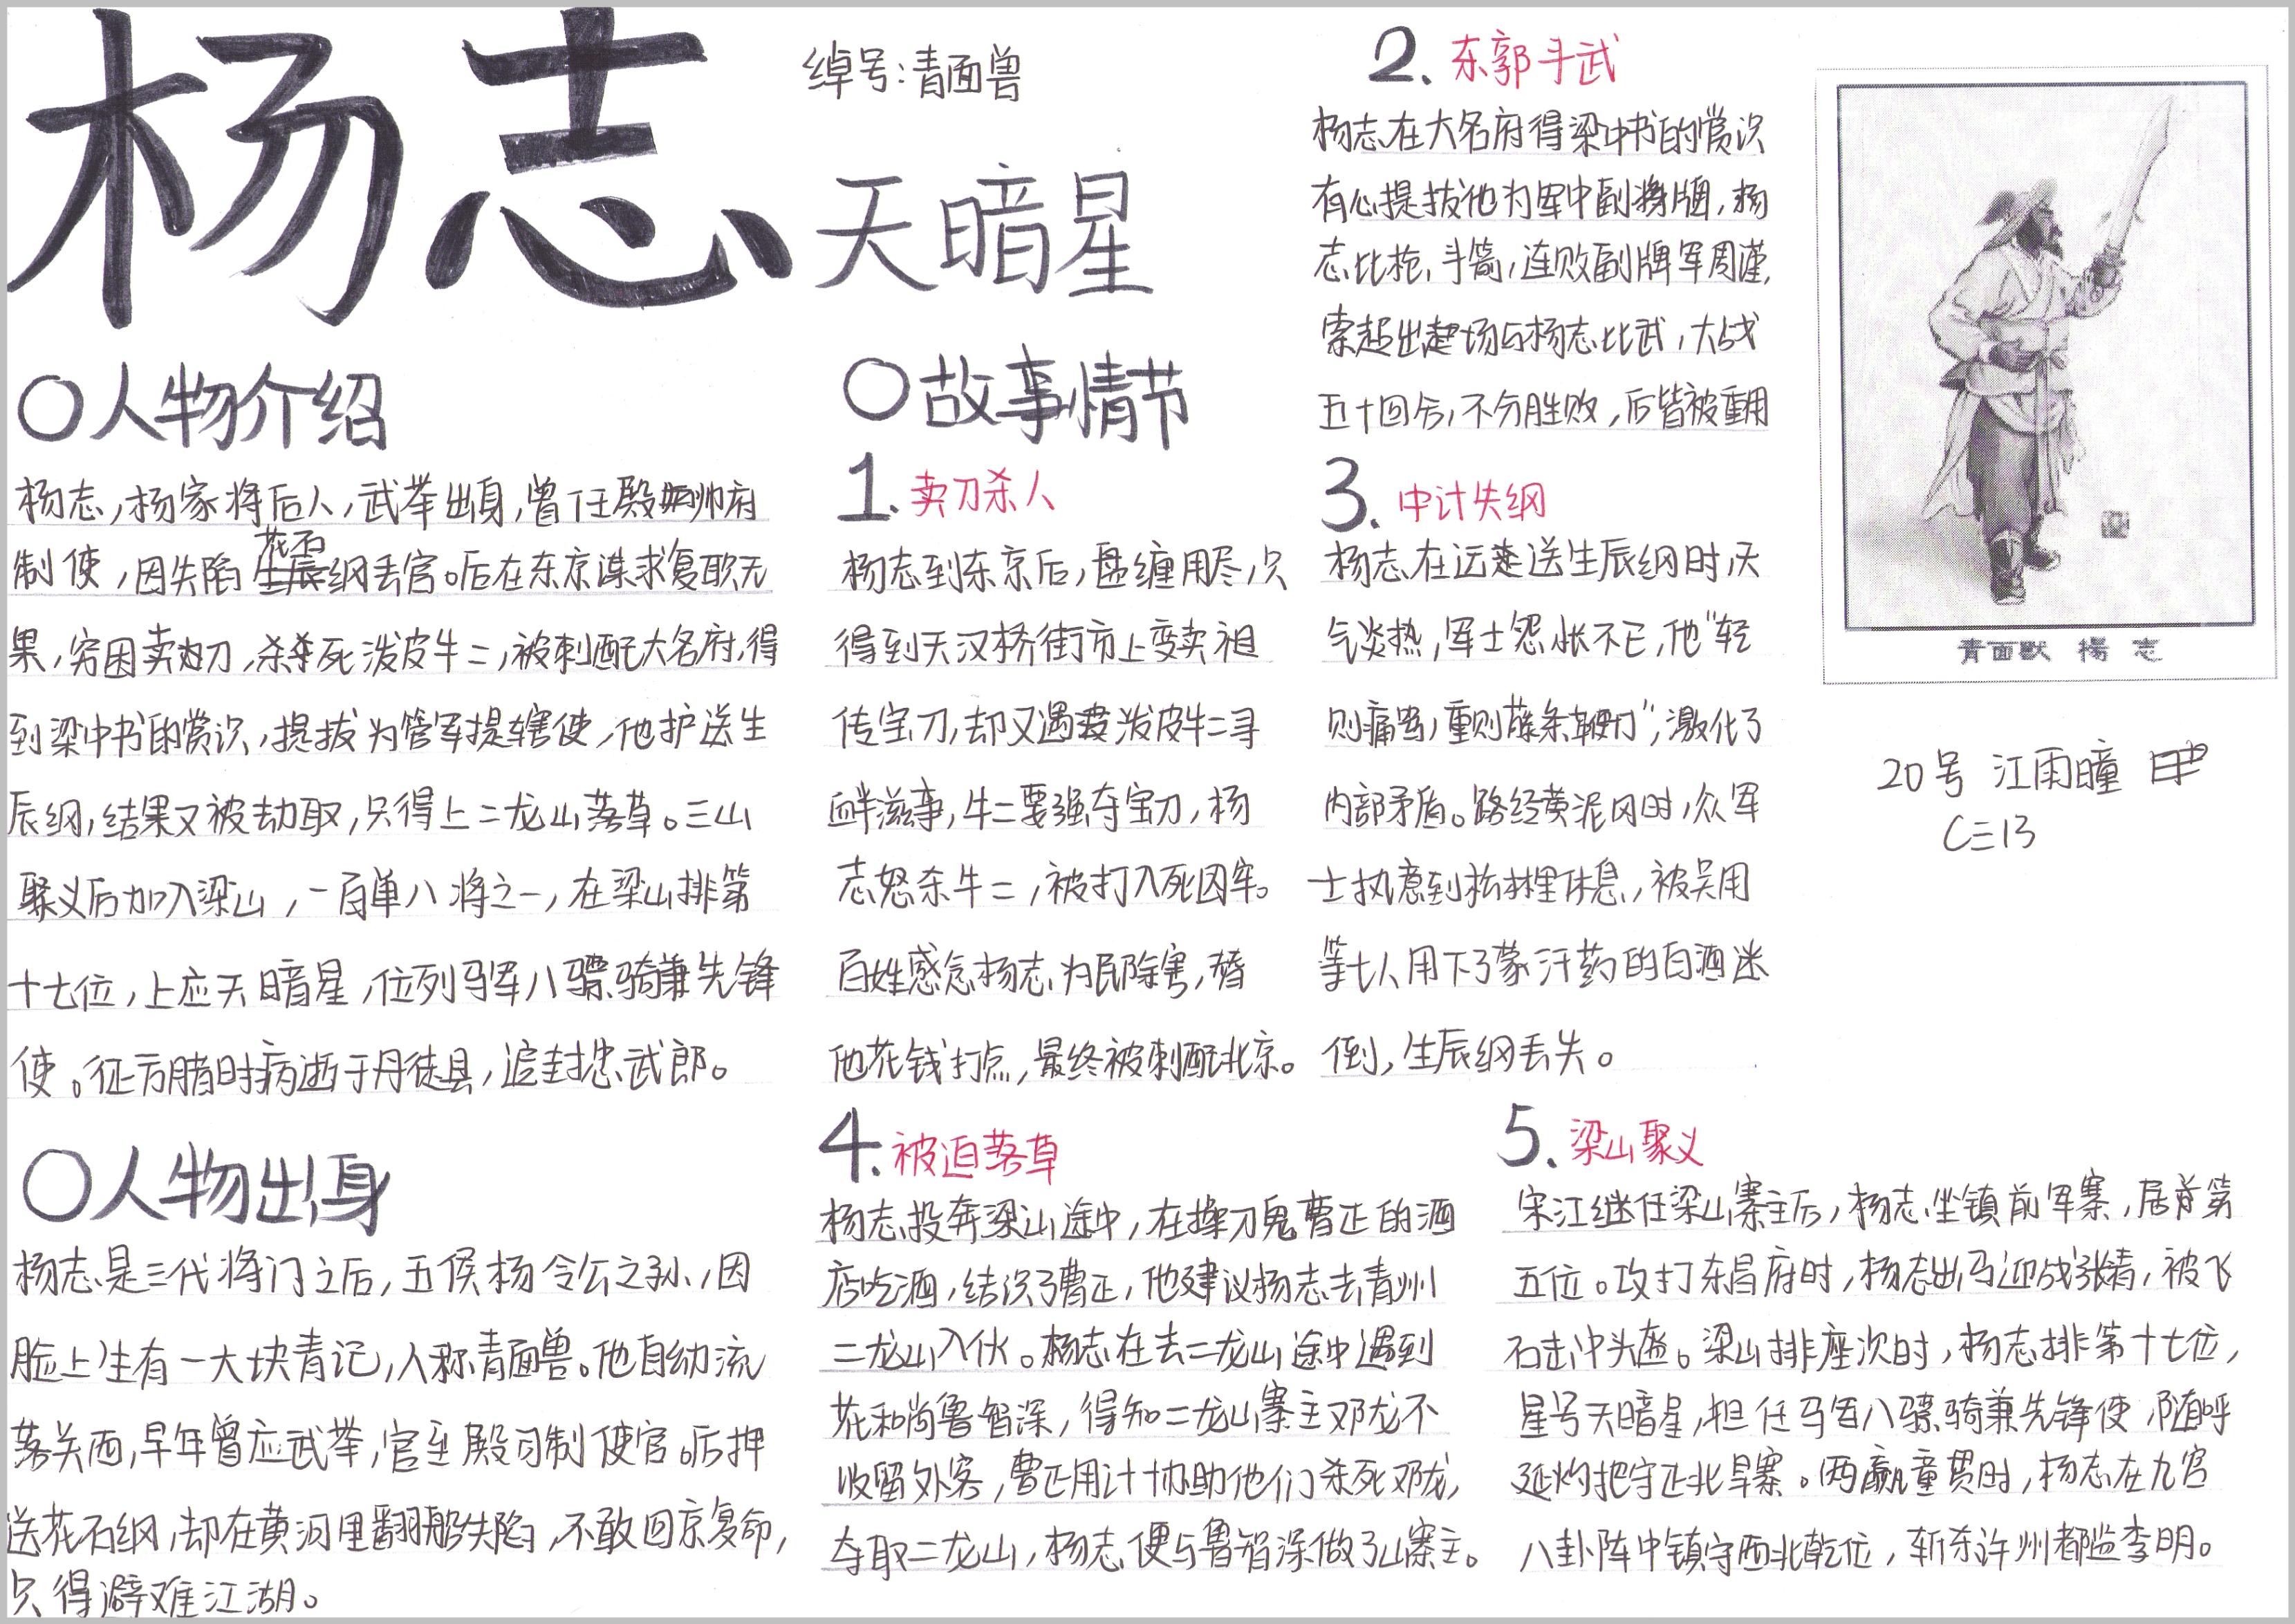 杨志
绰号:青面兽
天暗星
○人物介绍
杨志,杨家将后人,武举出身,曾任殿帅府
制使,因失陷花石纲丢官。后在东京谋求复职无
果,穷困卖刀,杀死泼皮牛二,被刺配大名府,得
到梁中书的赏识,提拔为管军提辖使,他护送生
辰纲,结果又被劫取,只得上二龙山落草。三山
聚义后加入梁山,一百单八将之一,在梁山排第
十七位,上应天暗星,位列马军八骠骑兼先锋
使。征方腊时病逝于丹徒县,追封忠武郎。
○人物出身
杨志是三代将门之后,五侯杨令公之孙,因
脸上生有一大块青记,人称青面兽。他自幼流
落关西,早年曾应武举,官至殿司制使官。后押
送花石纲,却在黄河里翻船失陷,不敢回京复命,
只得避难江湖。
○故事情节
1.卖刀杀人
杨志到东京后,盘缠用尽,只
得到天汉桥街市上变卖祖
传宝刀,却又遇泼皮牛二寻
衅滋事,牛二要强夺宝刀,杨
志怒杀牛二,被打入死囚牢。
百姓感念杨志为民除害,替
他花钱打点,最终被刺配北京。
2.东郭斗武
杨志在大名府得梁中书的赏识
有心提拔他为军中副牌,杨
志比枪、斗箭,连败副牌军周谨,
索超出场与杨志比武,大战
五十回合,不分胜败,后皆被重用
3.中计失纲
杨志在运送生辰纲时,天
气炎热,军士怨怅不已,他"轻
则痛骂,重则藤条鞭打",激化了
内部矛盾。路经黄泥冈时,众军
士执意到松林里休息,被吴用
等七人用下了蒙汗药的白酒迷
倒,生辰纲丢失。
4.被迫落草
杨志投奔梁山途中,在操刀鬼曹正的酒
店吃酒,结识了曹正,他建议杨志去青州
二龙山入伙。杨志在去二龙山途中遇到
花和尚鲁智深,得知二龙山寨主邓龙不
收留外客,曹正用计协助他们杀死邓龙,
夺取二龙山,杨志便与鲁智深做了山寨主。
5.梁山聚义
宋江继任梁山寨主后,杨志坐镇前军寨,居第
五位。攻打东昌府时,杨志出马迎战张清,被飞
石击中头盔。梁山排座次时,杨志排第十七位,
星号天暗星,担任马军八骠骑兼先锋使,随呼
延灼把守正北旱寨。两赢童贯时,杨志在九宫
八卦阵中镇守西北乾位,斩杀许州都监李明。
青面獸 楊 志
20号 江雨瞳
C三13